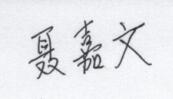 聂嘉文